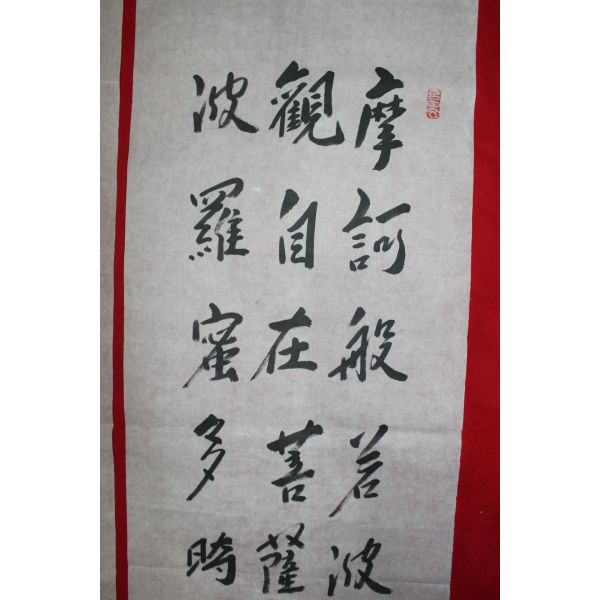 摩訶般若波
觀自在菩薩
波羅蜜多時